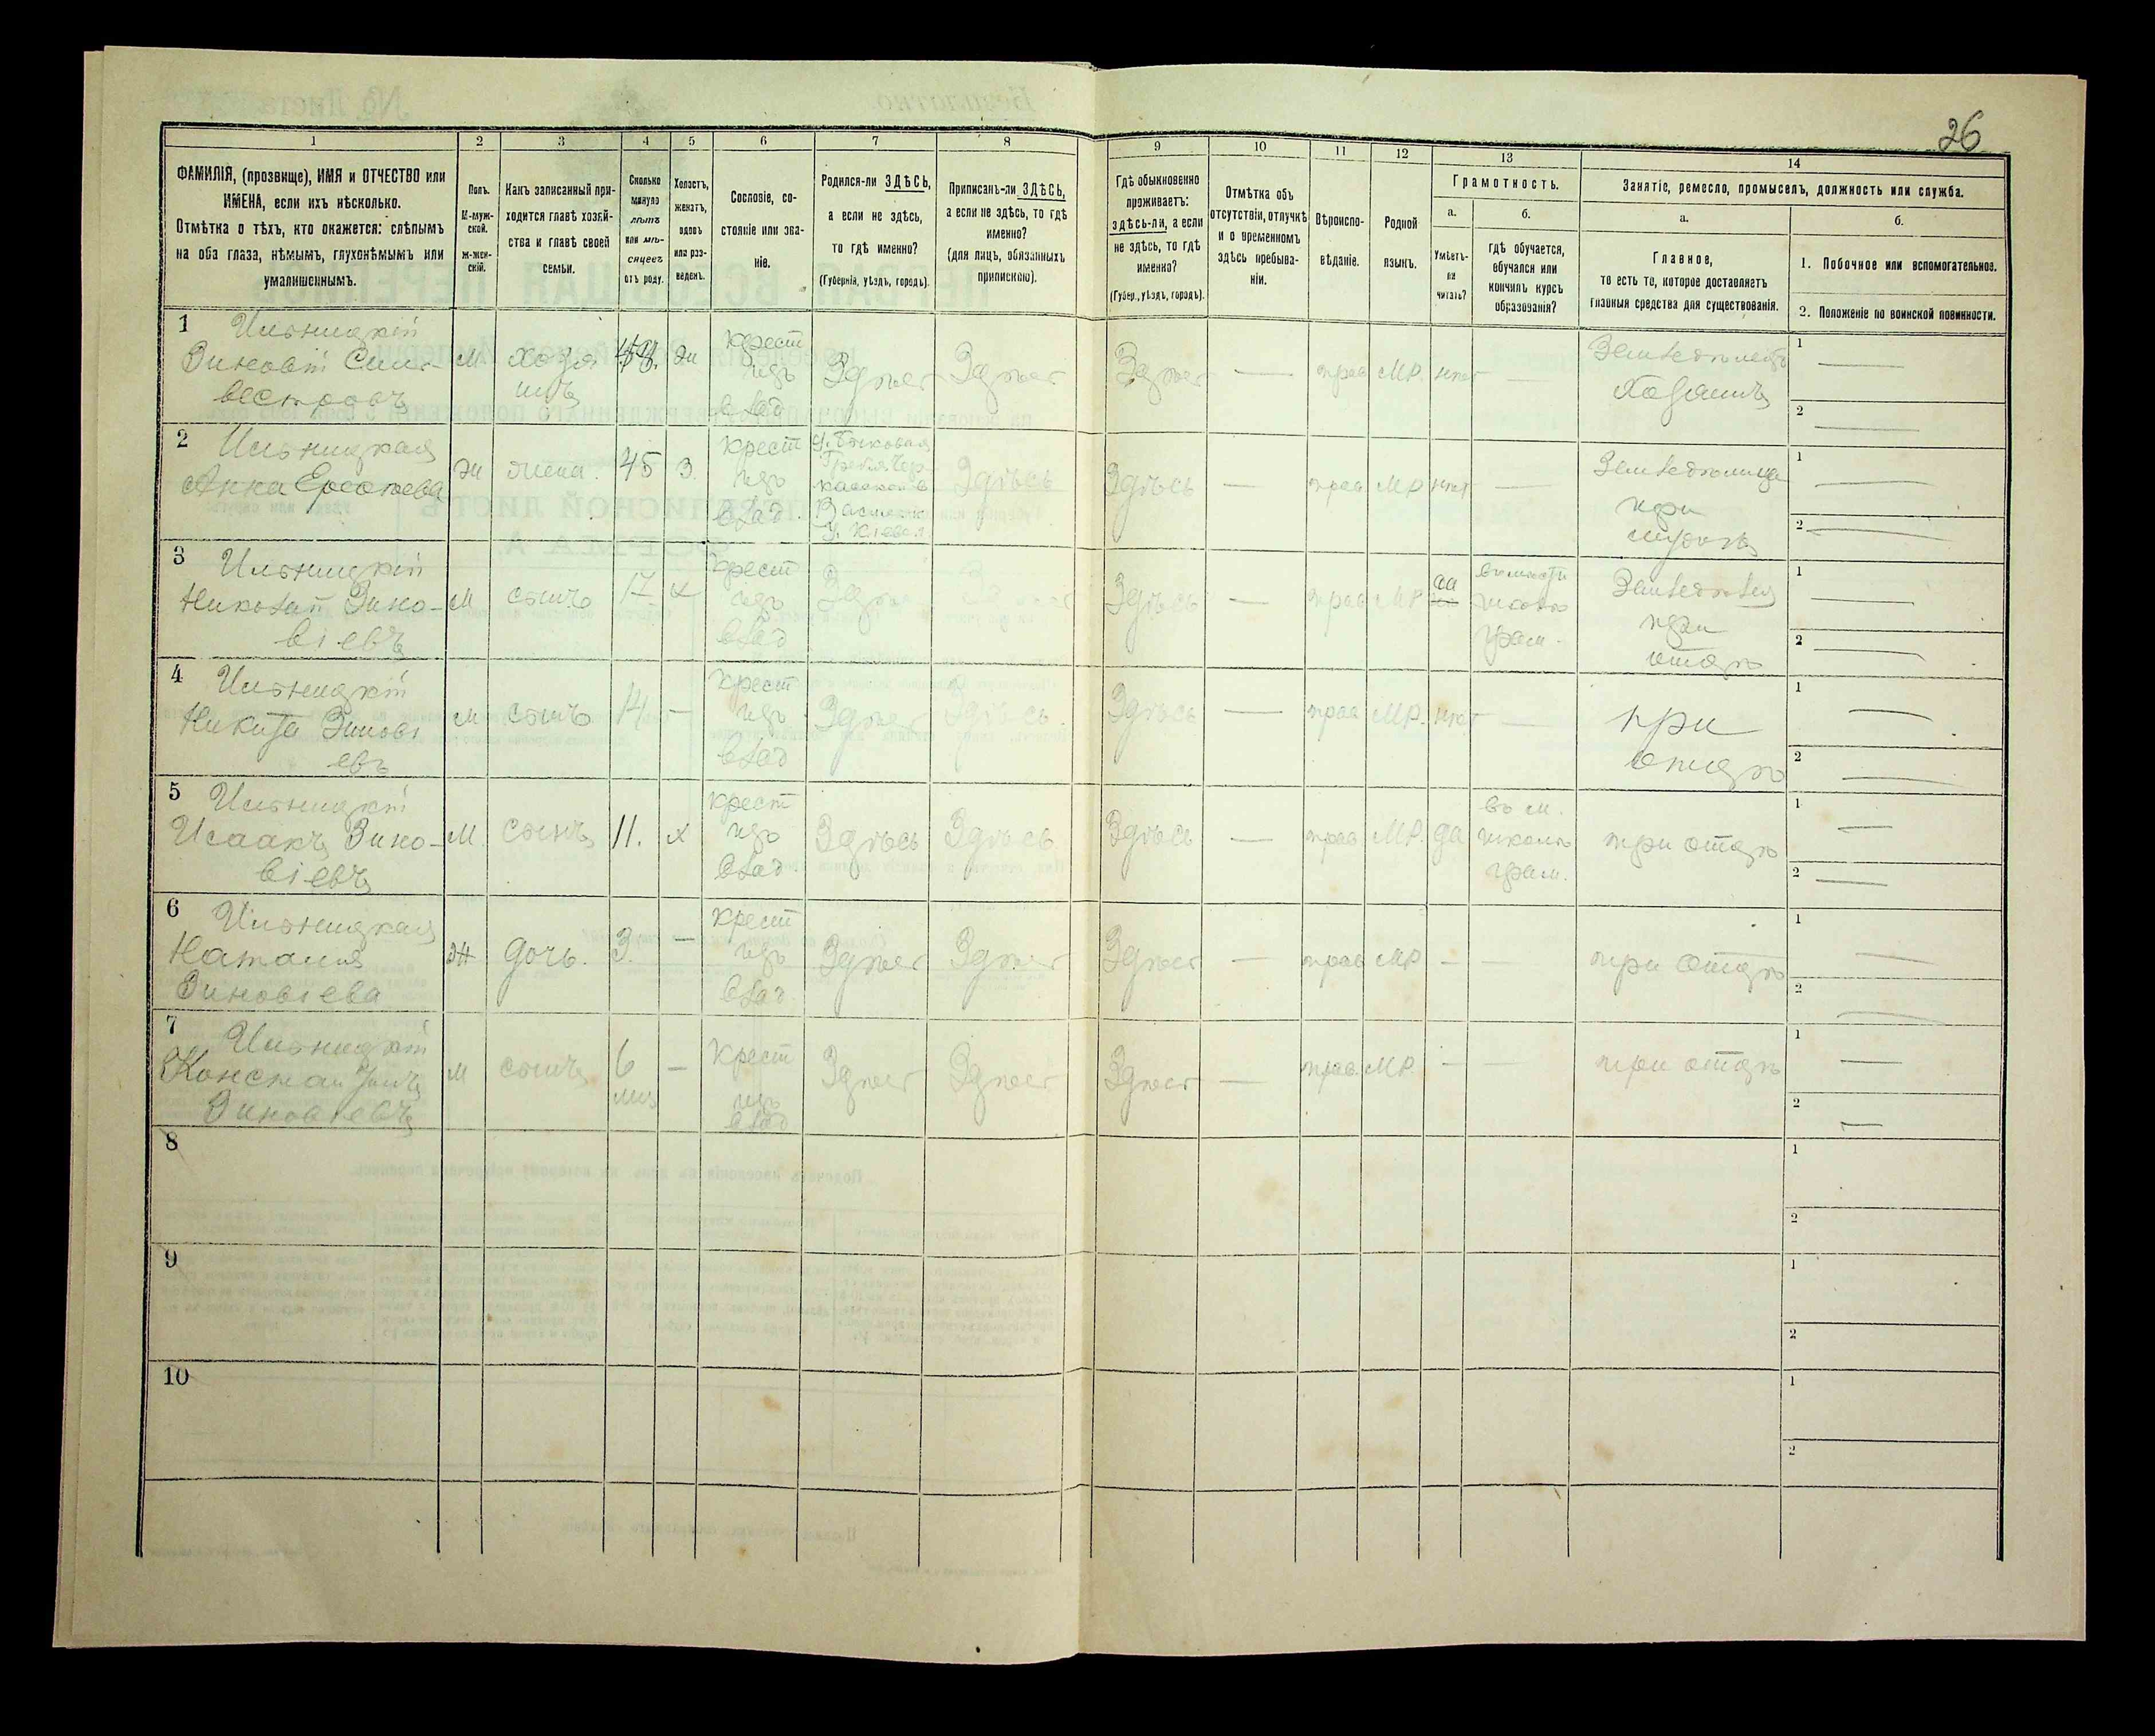 26
1 2 3 4 5 6 7 8 9 10 11 12 13 14
ФАМИЛІЯ, (прозвище), ИМЯ и ОТЧЕСТВО или
ИМЕНА, если ихъ нѣсколько.
Отмѣтка о тѣхъ, кто окажется: слѣпымъ
на оба глаза, нѣмымъ, глухонѣмымъ или
умалишеннымъ.
Полъ.
М-муж-
ской.
ж-жен-
скій.
Какъ записанный при-
ходится главѣ хозяй-
ства и главѣ своей
семьи.
Сколько
минуло
лѣтъ
или мѣ-
сяцевъ
отъ роду.
Холостъ,
женатъ,
вдовъ
или раз-
веденъ.
Сословіе, со-
стояніе или зва-
ніе.
Родился-ли ЗДѢСЬ,
а если не здѣсь,
то гдѣ именно?
(Губернія, уѣздъ, городъ).
Приписанъ-ли ЗДѢСЬ,
а если не здѣсь, то гдѣ
именно?
(для лицъ, обязанныхъ
припискою).
Гдѣ обыкновенно
проживаетъ:
здѣсь-ли, а если
не здѣсь, то гдѣ
именно?
(Губер., уѣздъ, городъ).
Отмѣтка объ
отсутствіи, отлучкѣ
и о временномъ
здѣсь пребыва-
ніи.
Вѣроиспо-
вѣданіе.
Родной
языкъ.
Грамотность.
а.
Умѣетъ-
ли
читать?
б.
гдѣ обучается,
обучался или
кончилъ курсъ
образованія?
Занятіе, ремесло, промыселъ, должность или служба.
а.
Главное,
то есть то, которое доставляетъ
главныя средства для существованія.
б.
1. Побочное или вспомогательное.
2. Положеніе по воинской повинности.
1 Ильницкій
Зиновій Силь-
вестровъ
м хозя
инъ
жн
крест
изъ
влад
Здѣсь Здѣсь Здѣсь — прав МР. нѣт —
Хозяинъ
1 —
2 —
2 Ильницкая
Анна
жн жена. 45 З.
крест
изъ
влад.
Здѣсь Здѣсь — прав МР нѣт —
при
1 —
2 —
3 Ильницкій
Николай Зино-
віевъ
м сынъ 17 х
крест
изъ
влад
Здѣсь — прав МР да
школѣ
грам.
при
отцѣ
1 —
2 —
4 Ильницкій
Никита Зинові
евъ
м сынъ 14 —
крест
изъ
влад
Здѣсь Здѣсь. Здѣсь — прав МР. нѣт —
при
отцѣ
1 —
2 —
5 Ильницкій
Исаакъ Зино-
віевъ
М. сынъ 11. х
крест
изъ
влад.
Здѣсь Здѣсь. Здѣсь — прав МР. да
въ м.
школѣ
грам.
при отцѣ
1 —
2 —
6 Ильницкая
Наталия
Зиновіева
ж дочь. 3. —
крест
изъ
влад.
Здѣсь Здѣсь Здѣсь — прав МР — —
при отцѣ
1 —
2 —
7 Ильницкій
Константинъ
Зиновіевъ
м сынъ 6
мць
—
крест
изъ
влад
Здѣсь Здѣсь Здѣсь — прав. МР. — —
при отцѣ
1 —
2 —
8
1
2
9
1
2
10
1
2